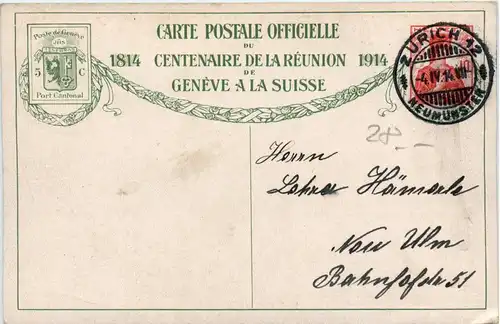 CARTE POSTALE OFFICIELLE
DU
1814 CENTENAIRE DE LA RÉUNION 1914
DE
GENÈVE A LA SUISSE
Poste de Genève
5 C
Port Cantonal
10
ZÜRICH 12
-4.IV.14.VIII-
NEUMÜNSTER
28.-
Herrn
Lehrer Hämerle
Neu Ulm
Bahnhofstr 51